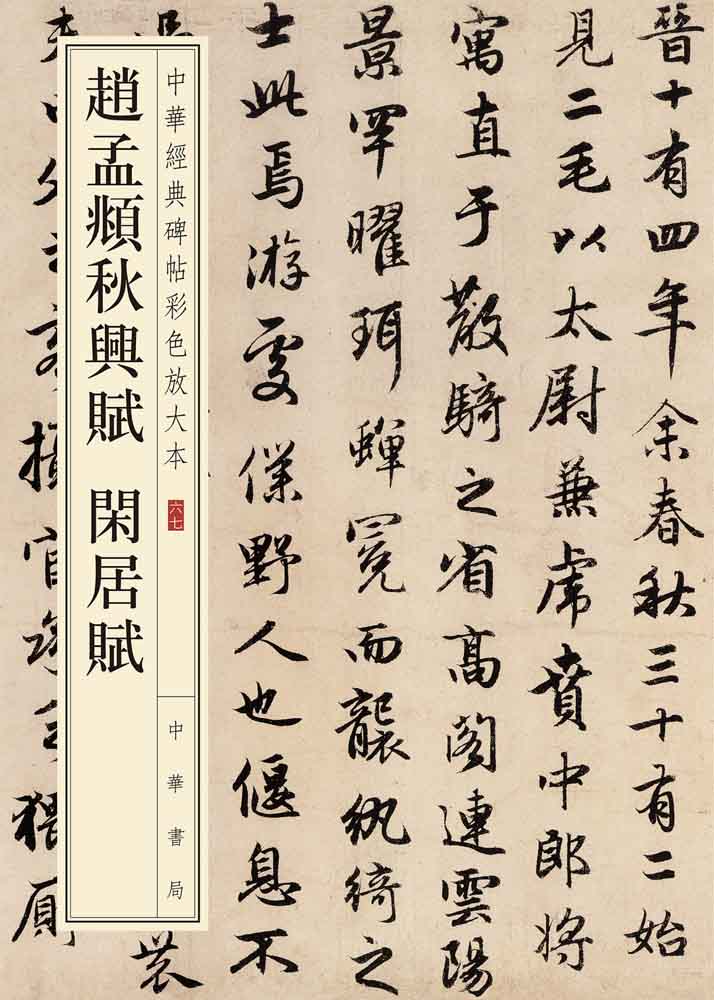 晉十有四年余春秋三十有二始
見二毛以太尉兼虎賁中郎將
寓直于散騎之省高閣連雲陽
景罕曜珥蟬冕而襲紈綺之
士此焉游處僕野人也偃息不
農
攝官承乏猥厠
中華經典碑帖彩色放大本
六七
中華書局
趙孟頫秋興賦 閑居賦